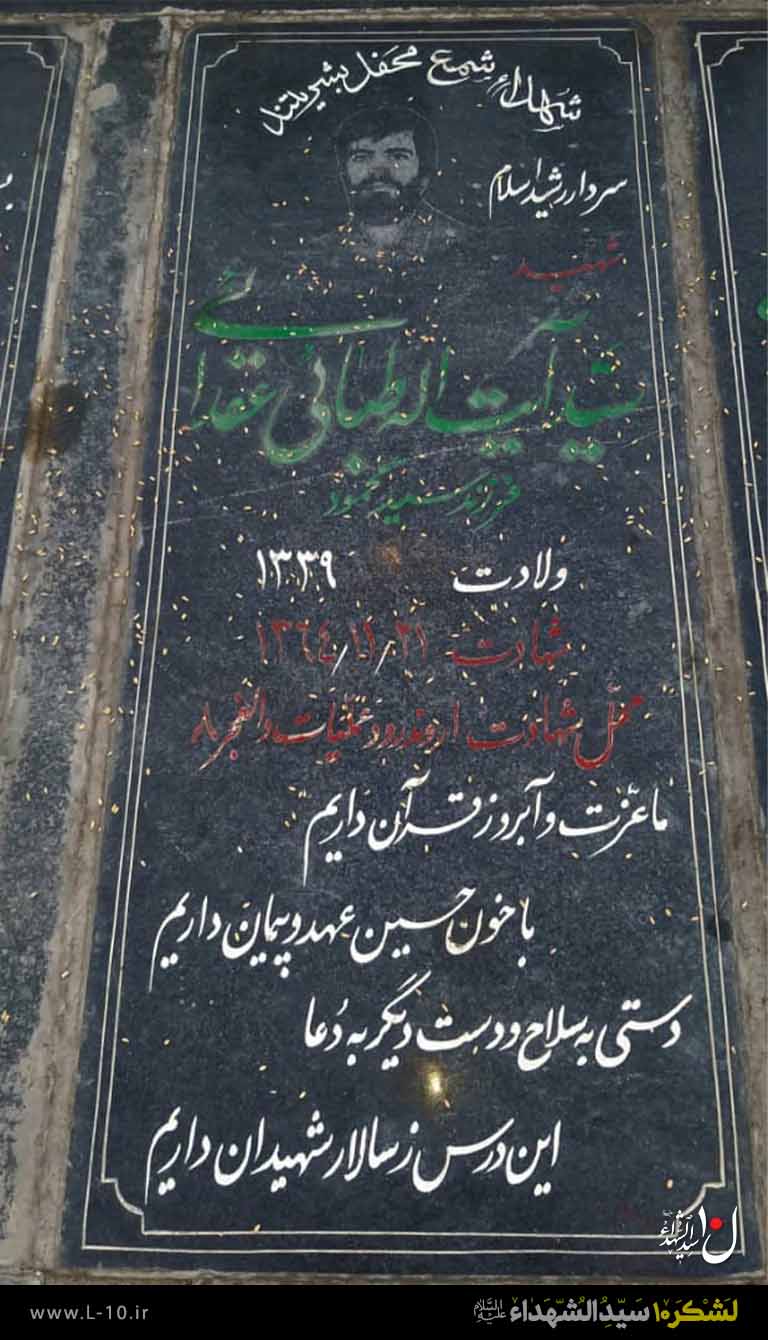 شهداء شمع محفل بشریتند
سردار رشید اسلام
شهید
سید آیت اله طبائی عقدائی
فرزند سید محمود
ولادت ۱۳۳۹
شهادت ۱۳۶۴/۱۱/۲۱
محل شهادت اروندرود عملیات والفجر ۸
ما عزت و آبرو ز قرآن داریم
با خون حسین عهد و پیمان داریم
دستی به سلاح و دست دیگر به دُعا
این درس ز سالار شهیدان داریم
ل۱۰ سیدالشهداء
www.L-10.ir
لَشْکَر۱۰ سَیِّدُالشُّهَداء علیه‌السلام